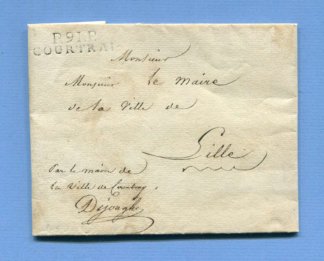 P91P
COURTRAI
Monsieur
Monsieur le maire
de la Ville de
Lille
Par le maire de
la Ville de Courtray